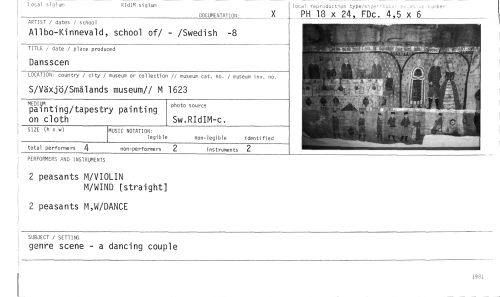 local siglum RIdIM siglum
DOCUMENTATION: X
local reproduction type/
number
PH 18 x 24, FDc. 4,5 x 6
ARTIST / dates / school
Allbo-Kinnevald, school of/ - /Swedish -8
TITLE / date / place produced
Dansscen
LOCATION: country / city / museum or collection // museum cat. no. / museum inv. no.
S/Växjö/Smålands museum// M 1623
MEDIUM
painting/tapestry painting
on cloth
photo source
Sw.RIdIM-c.
SIZE (h x w)
MUSIC NOTATION:
legible non-legible identified
total performers 4 non-performers 2 instruments 2
PERFORMERS AND INSTRUMENTS
2 peasants M/VIOLIN
M/WIND [straight]
2 peasants M,W/DANCE
SUBJECT / SETTING
genre scene - a dancing couple
1981